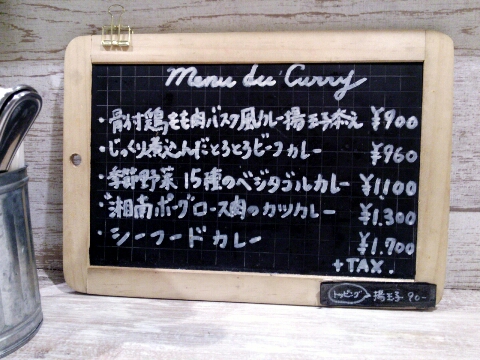 Menu du Curry
・骨付鶏もも肉バスク風カレー揚玉子添え ¥900
・じっくり煮込んだとろとろビーフカレー ¥960
・季節野菜15種のベジタブルカレー ¥1,100
・湘南ポークロース肉のカツカレー ¥1,300
・シーフードカレー ¥1,700
+TAX.
トッピング 揚玉子 90-